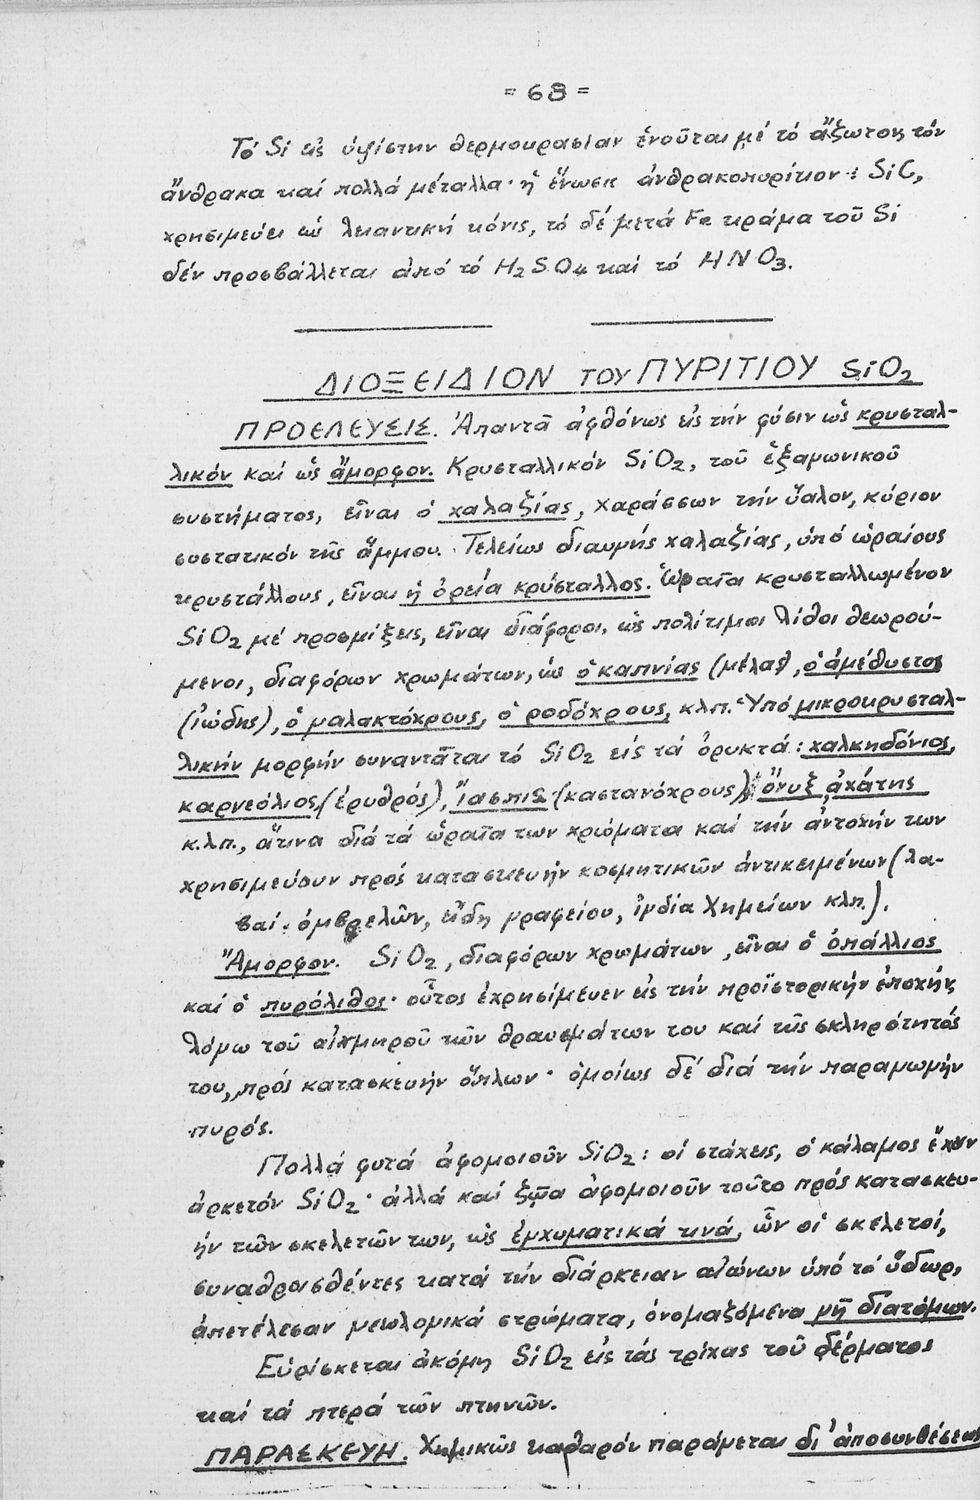 = 68 =
Τό Si εἰς ὑψίστην θερμοκρασίαν ἑνοῦται μέ τό ἄζωτον, τόν
ἄνθρακα καί πολλά μέταλλα· ἡ ἕνωσις ἀνθρακοπυρίτιον: SiC,
χρησιμεύει ὡς λειαντική κόνις, τό δέ μετά Fe κράμα τοῦ Si
δέν προσβάλλεται ἀπό τό H₂SO₄ καί τό HNO₃.
ΔΙΟΞΕΙΔΙΟΝ ΤΟΥ ΠΥΡΙΤΙΟΥ SiO₂
ΠΡΟΕΛΕΥΣΙΣ. Ἀπαντᾶ ἀφθόνως εἰς τήν φύσιν ὡς κρυσταλ-
λικόν καί ὡς ἄμορφον. Κρυσταλλικόν SiO₂, τοῦ ἑξαγωνικοῦ
συστήματος, εἶναι ὁ χαλαζίας, χαράσσων τήν ὕαλον, κύριον
συστατικόν τῆς ἄμμου. Τελείως διαυγής χαλαζίας, ὑπό ὡραίους
κρυστάλλους, εἶναι ἡ ὀρεία κρύσταλλος. Ὡραῖα κρυσταλλωμένον
SiO₂ μέ προσμίξεις, εἶναι διάφοροι, ὡς πολίτιμοι λίθοι θεωρού-
μενοι, διαφόρων χρωμάτων, ὡς ὁ καπνίας (μέλας), ὁ ἀμέθυστος
(ἰώδης), ὁ γαλακτόχρους, ὁ ροδόχρους, κλπ. Ὑπό μικροκρυσταλ-
λικήν μορφήν συναντᾶται τό SiO₂ εἰς τά ὀρυκτά: χαλκηδόνιος,
καρνεόλιος, (ἐρυθρός), ἴασπις (καστανόχρους), ὄνυξ, ἀχάτης
κ.λπ., ἅτινα διά τά ὡραῖα των χρώματα καί τήν ἀντοχήν των
χρησιμεύουν πρός κατασκευήν κοσμητικῶν ἀντικειμένων (λα-
βαί, ὀμβρελῶν, εἴδη γραφείου, ἰγδία Χημείων κλπ.).
Ἄμορφον. SiO₂, διαφόρων χρωμάτων, εἶναι ὁ ὀπάλλιος
καί ὁ πυρόλιθος· οὗτος ἐχρησίμευεν εἰς τήν προϊστορικήν ἐποχήν,
λόγω τοῦ αἰχμηροῦ τῶν θραυσμάτων του καί τῆς σκληρότητός
του, πρός κατασκευήν ὅπλων· ὁμοίως δέ διά τήν παραγωγήν
πυρός.
Πολλά φυτά ἀφομοιοῦν SiO₂: οἱ στάχεις, ὁ κάλαμος ἔχουν
ἀρκετόν SiO₂· ἀλλά καί ζῶα ἀφομοιοῦν τοῦτο πρός κατασκευ-
ήν τῶν σκελετῶν των, ὡς ἐγχυματικά τινά, ὧν οἱ σκελετοί,
συναθροισθέντες κατά τήν διάρκειαν αἰώνων ὑπό τό ὕδωρ,
ἀπετέλεσαν γεωλογικά στρώματα, ὀνομαζόμενα γῆ διατόμων.
Εὑρίσκεται ἀκόμη SiO₂ εἰς τάς τρίχας τοῦ δέρματος
καί τά πτερά τῶν πτηνῶν.
ΠΑΡΑΣΚΕΥΗ. Χημικῶς καθαρόν παράγεται δι' ἀποσυνθέσεως